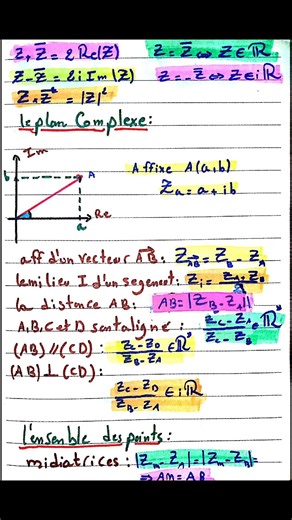 Z + Z̄ = 2 Re(Z)    Z = Z̄ ⇔ Z ∈ ℝ
Z - Z̄ = 2i Im(Z)    Z = -Z̄ ⇔ Z ∈ iℝ
Z × Z̄ = |Z|²
le plan Complexe:
Im
b A
a Re
Affixe A(a,b)
Z_a = a + ib
aff d'un vecteur AB: Z_AB = Z_B - Z_A
le milieu I d'un segement: Z_i = (Z_A + Z_B)/2
la distance AB: AB = |Z_B - Z_A|
A, B, C et D sont aligne: (Z_C - Z_A)/(Z_C - Z_B) ∈ ℝ*
(AB) // (CD): (Z_C - Z_D)/(Z_B - Z_A) ∈ ℝ*
(AB) ⊥ (CD):
(Z_C - Z_D)/(Z_B - Z_A) ∈ iℝ
l'ensemble des points:
midiatrices: |Z_m - Z_A| = |Z_m - Z_B| =
⇒ AM = AB